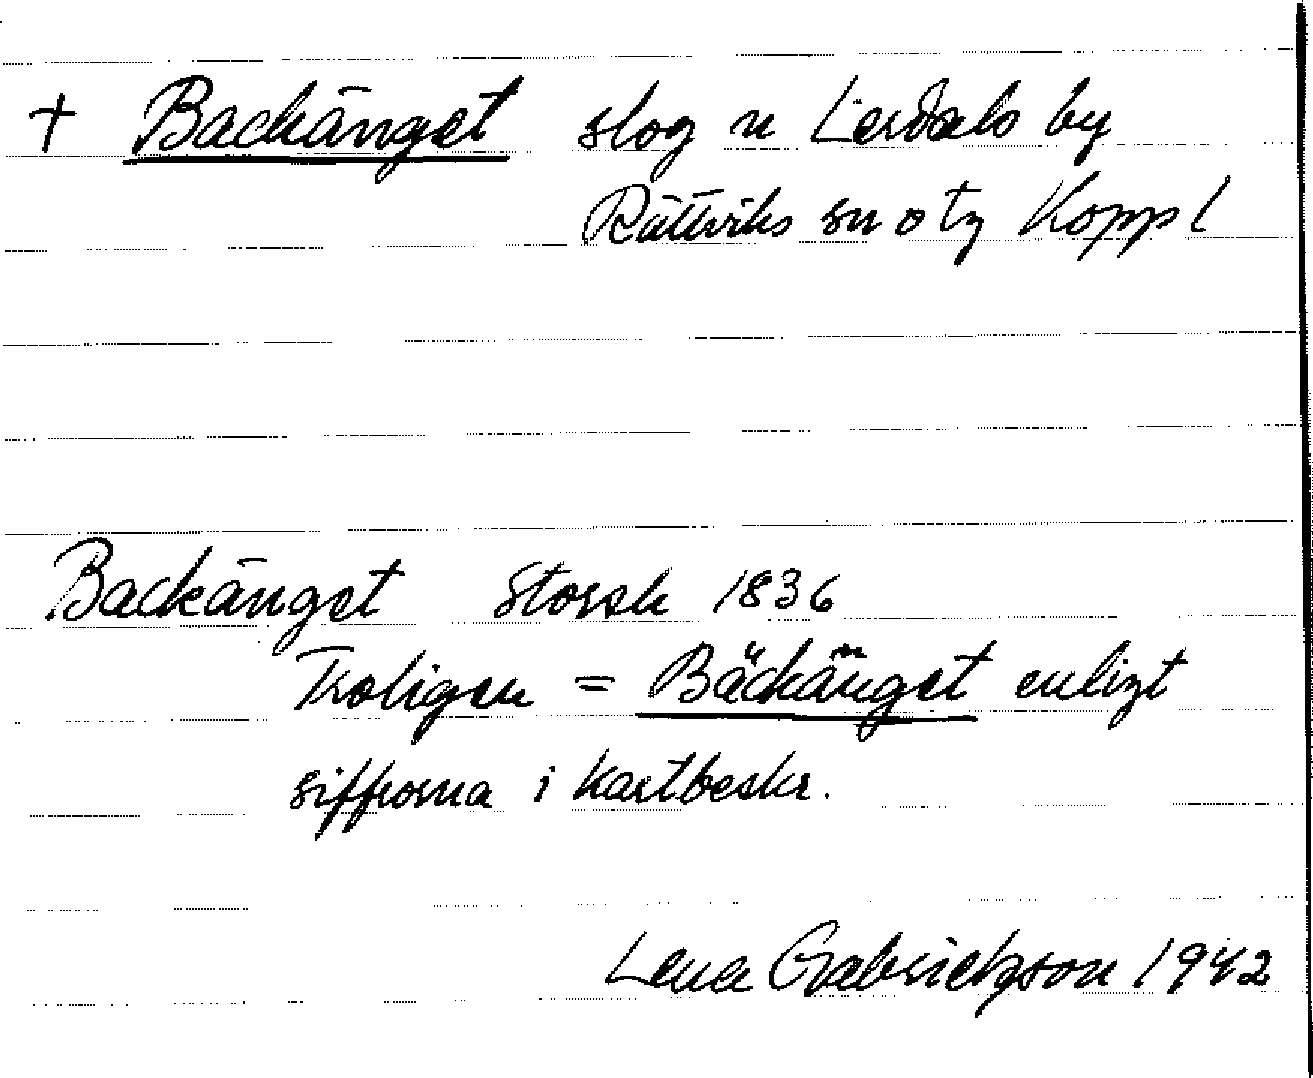 † Backänget slog n Lerdals by
Rättviks sn o tg Koppl
Backänget Storsk 1836
Troligen = Bäckänget enligt
siffrorna i kartbeskr.
Lena Gabrielsson 1942